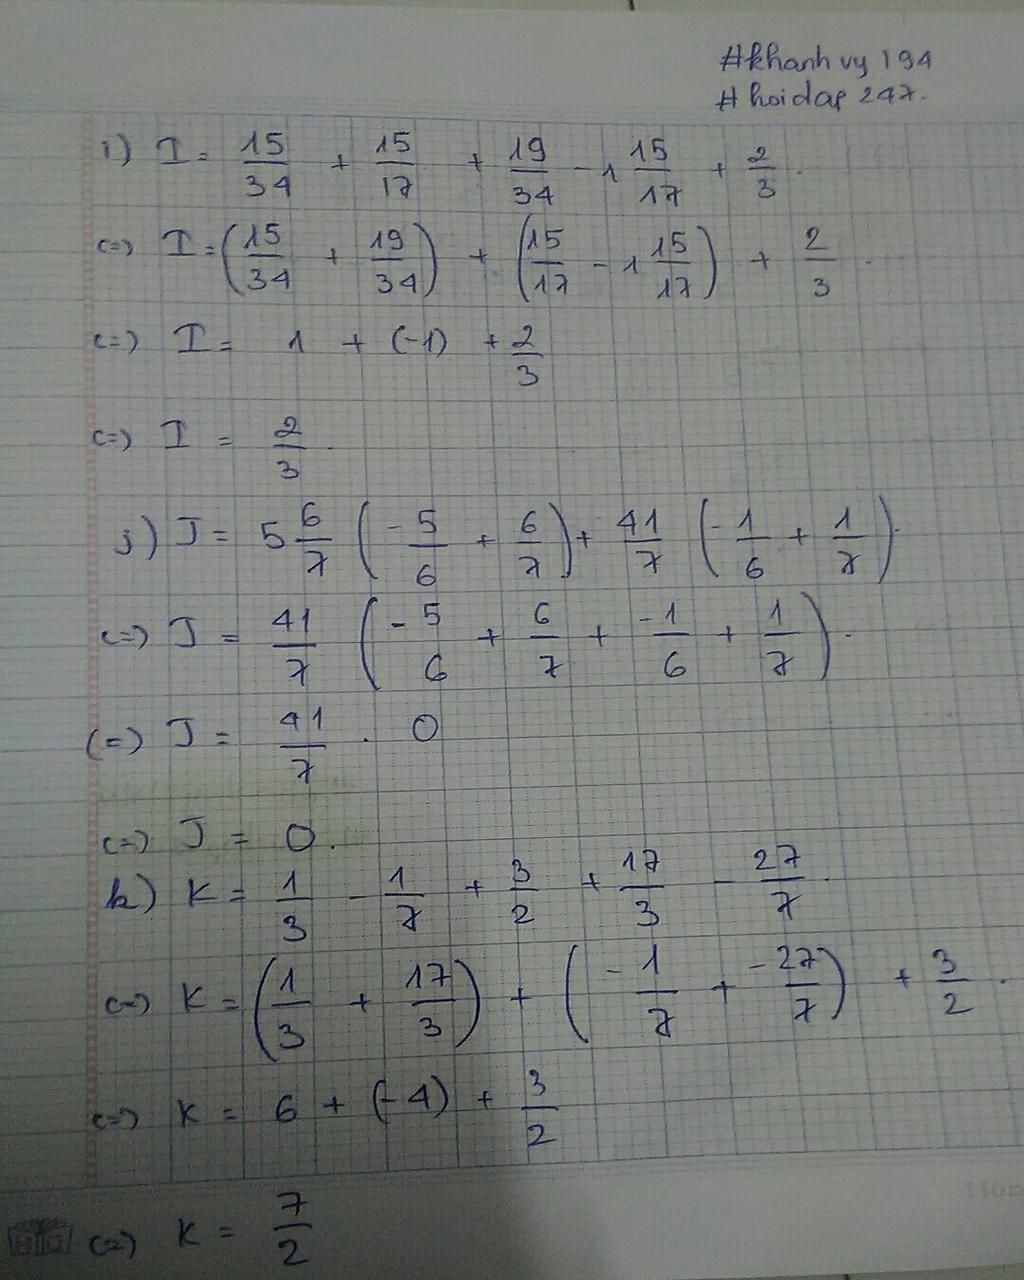 #khanh vy 194
# hoidap 247.
i) I = 15/34 + 15/17 + 19/34 - 1 15/17 + 2/3.
<=> I = (15/34 + 19/34) + (15/17 - 1 15/17) + 2/3.
<=> I = 1 + (-1) + 2/3
<=> I = 2/3.
j) J = 5 6/7 (-5/6 + 6/7) + 41/7 (-1/6 + 1/7).
<=> J = 41/7 (-5/6 + 6/7 + -1/6 + 1/7).
<=> J = 41/7 . 0
<=> J = 0.
k) K = 1/3 - 1/7 + 3/2 + 17/3 - 27/7.
<=> K = (1/3 + 17/3) + (-1/7 + -27/7) + 3/2.
<=> K = 6 + (-4) + 3/2
<=> K = 7/2